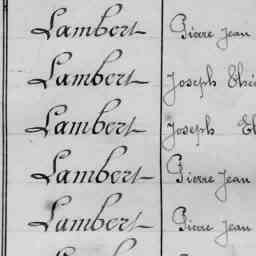 Lambert Pierre Jean
Lambert Joseph
Lambert Joseph
Lambert Pierre Jean
Lambert Pierre Jean